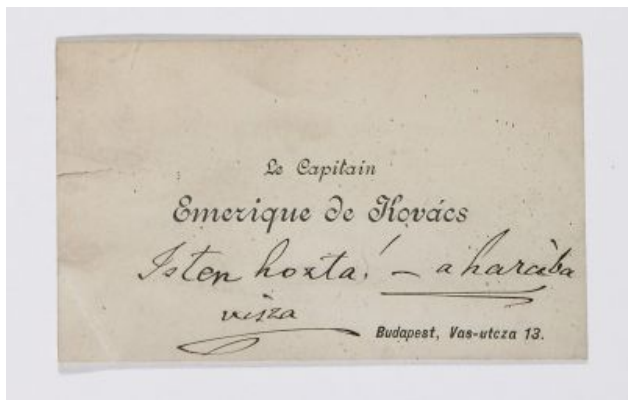 Le Capitain
Emerique de Kovács
Isten hozta! – a
visza
Budapest, Vas-utcza 13.